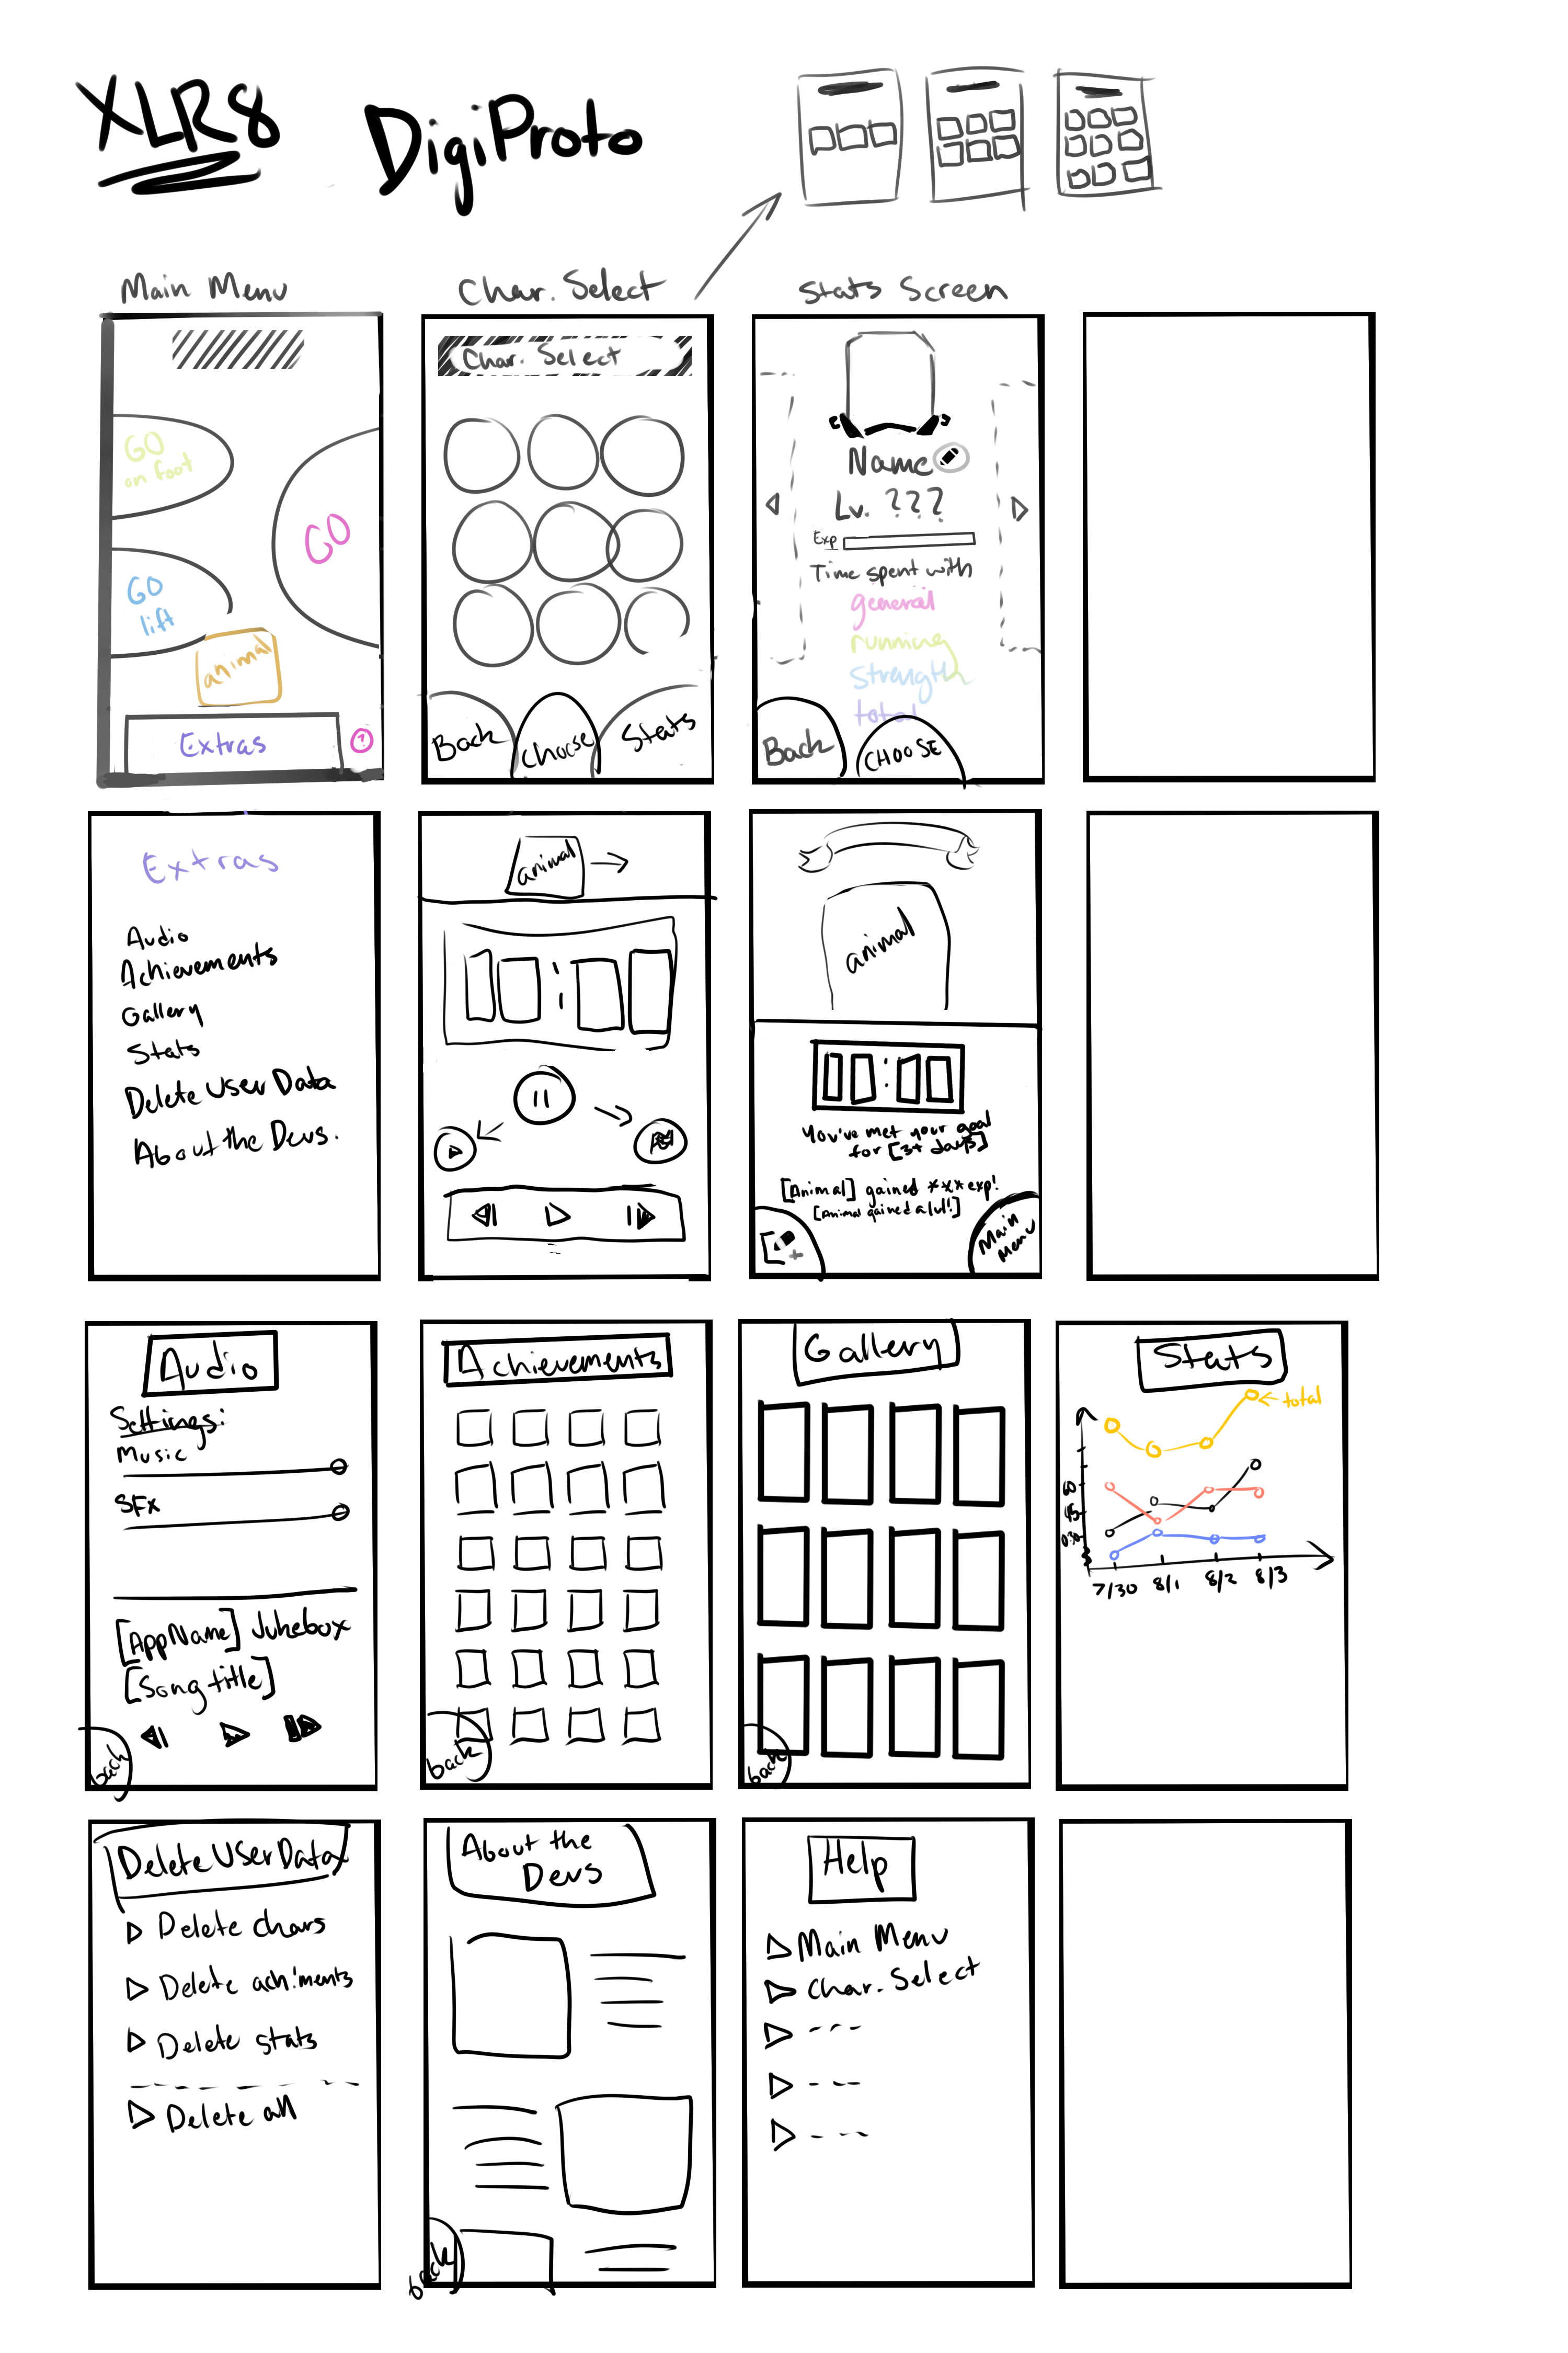 XLR8
DigiProto
Main Menu
Char. Select
Stats Screen
GO
on foot
GO
GO
lift
animal
Extras
?
Char. Select
Back
Choose
Stats
Name
Lv. ???
Exp
Time spent with
general
running
strength
total
Back
CHOOSE
Extras
Audio
Achievements
Gallery
Stats
Delete User Data
About the Devs.
animal
animal
You've met your goal
for [3+ days]
[Animal] gained *** exp!
[Animal gained a lvl!]
Main
Menu
Audio
Settings:
Music
SFX
[AppName] Jukebox
[Song title]
back
Achievements
back
Gallery
back
Stats
total
7/30 8/1 8/2 8/3
Delete User Data
Delete chars
Delete ach'ments
Delete stats
Delete all
About the
Devs
back
Help
Main Menu
Char. Select